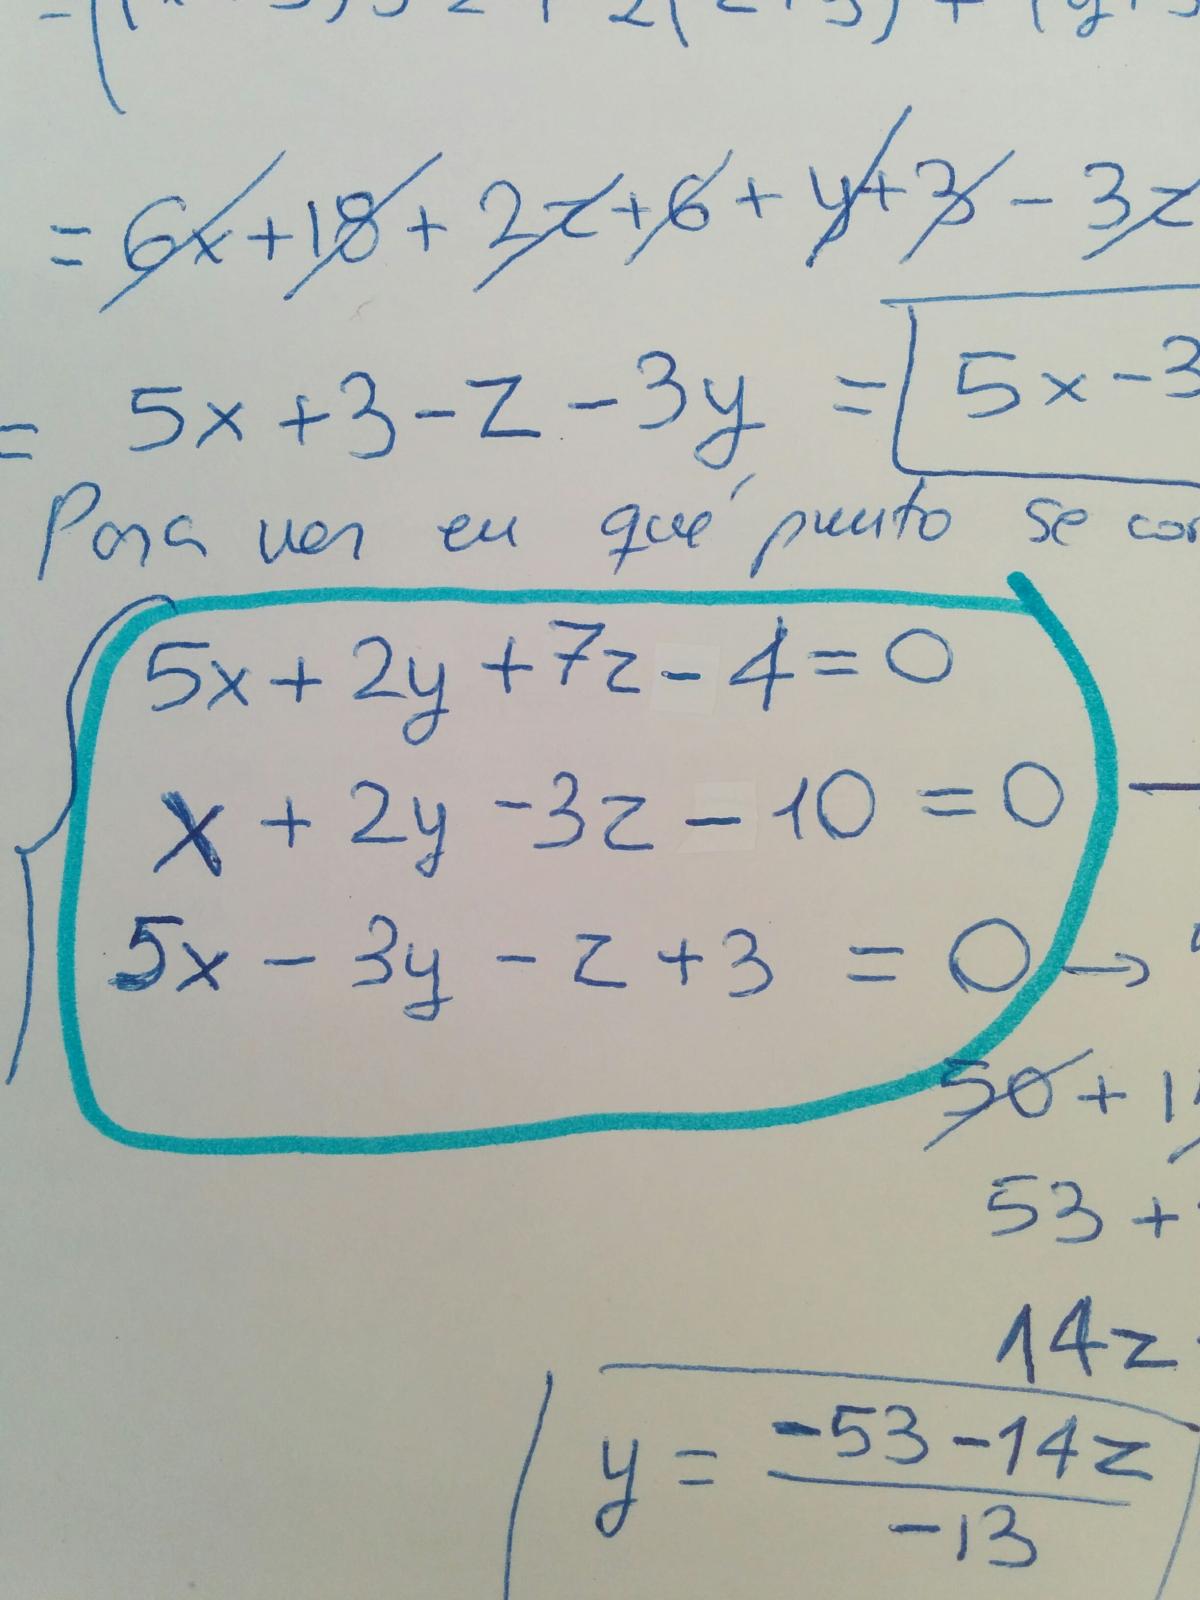 = 6x + 18 + 2z + 6 + y + 3 - 3z
= 5x + 3 - z - 3y = 5x - 3
Para ver en qué punto se cor
5x + 2y + 7z - 4 = 0
x + 2y - 3z - 10 = 0
5x - 3y - z + 3 = 0 →
50 + 1
53 +
14z
y = \frac{-53 - 14z}{-13}